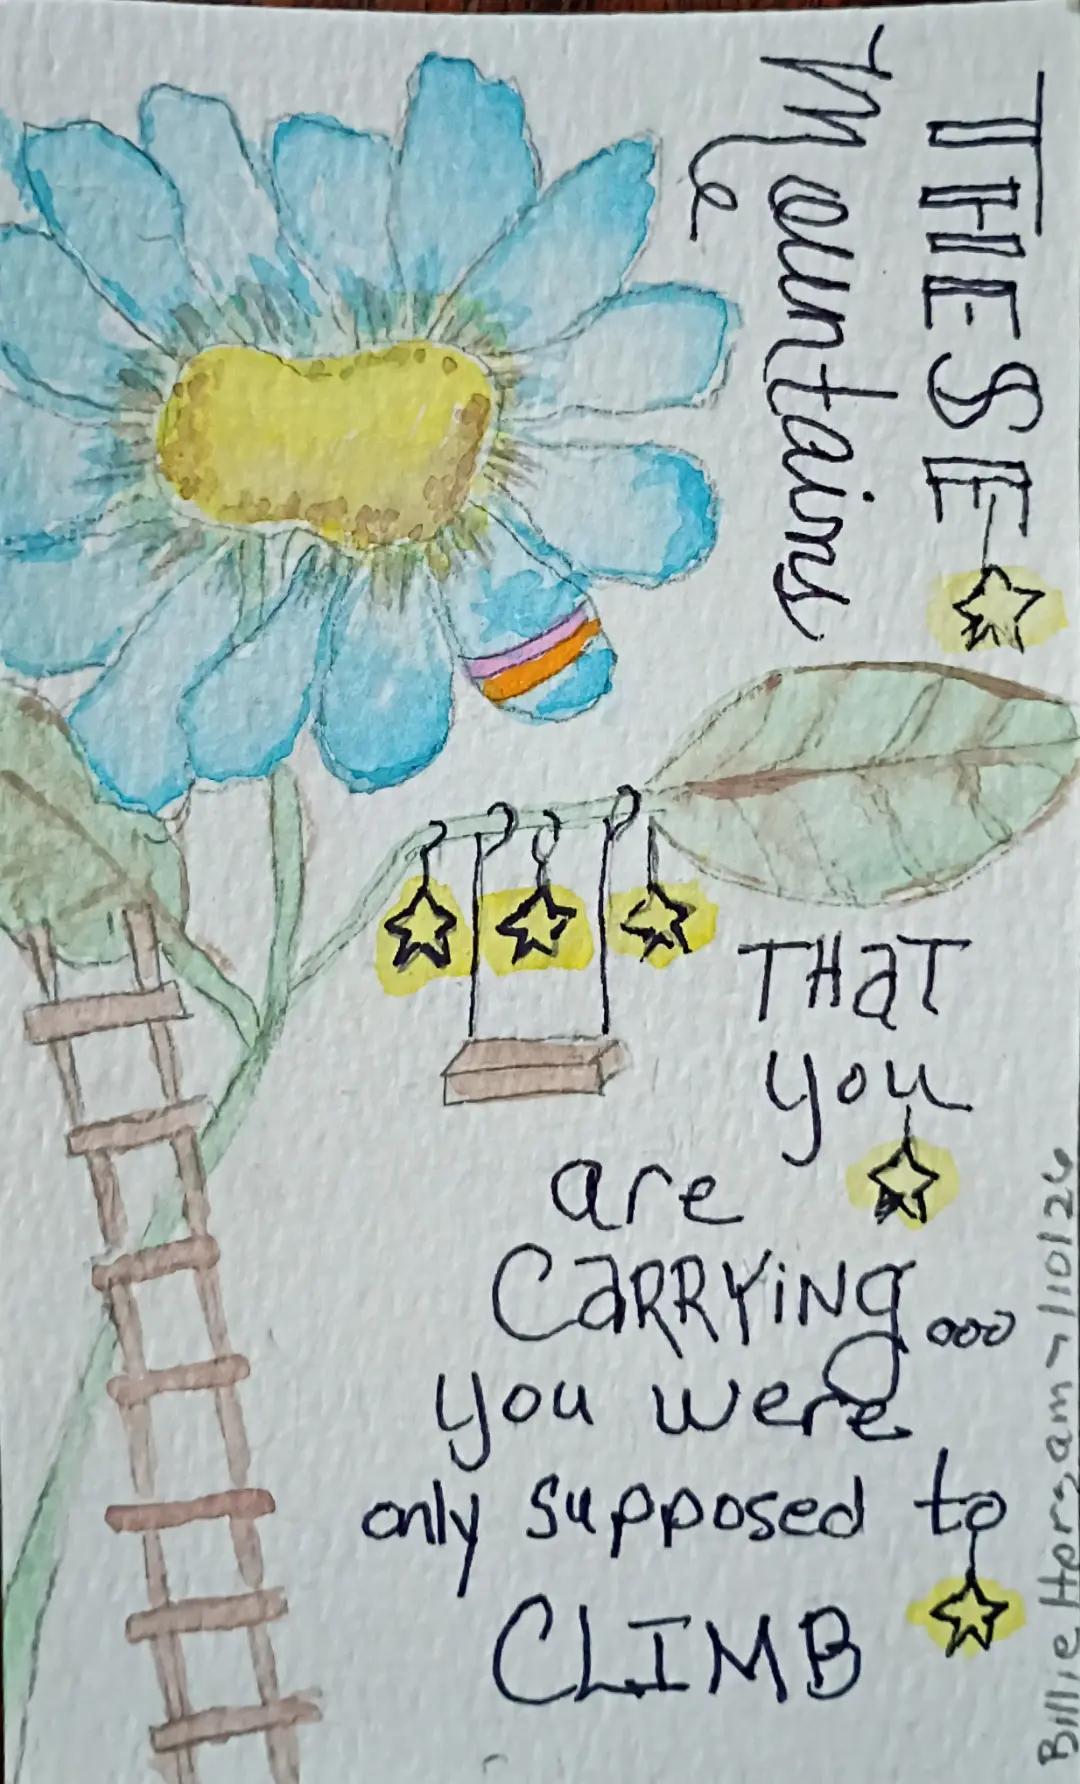 THESE
Mountains
THat
you
are
CaRRYiNg...
you were
only supposed to
CLIMB
Billie Horsam 7/10/26